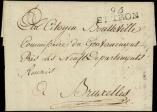 96
ST TRON
Au Citoyen Bouteville
Commissaire du Gouvernement
Près des Neuf Departements
Reunis
à Bruxelles